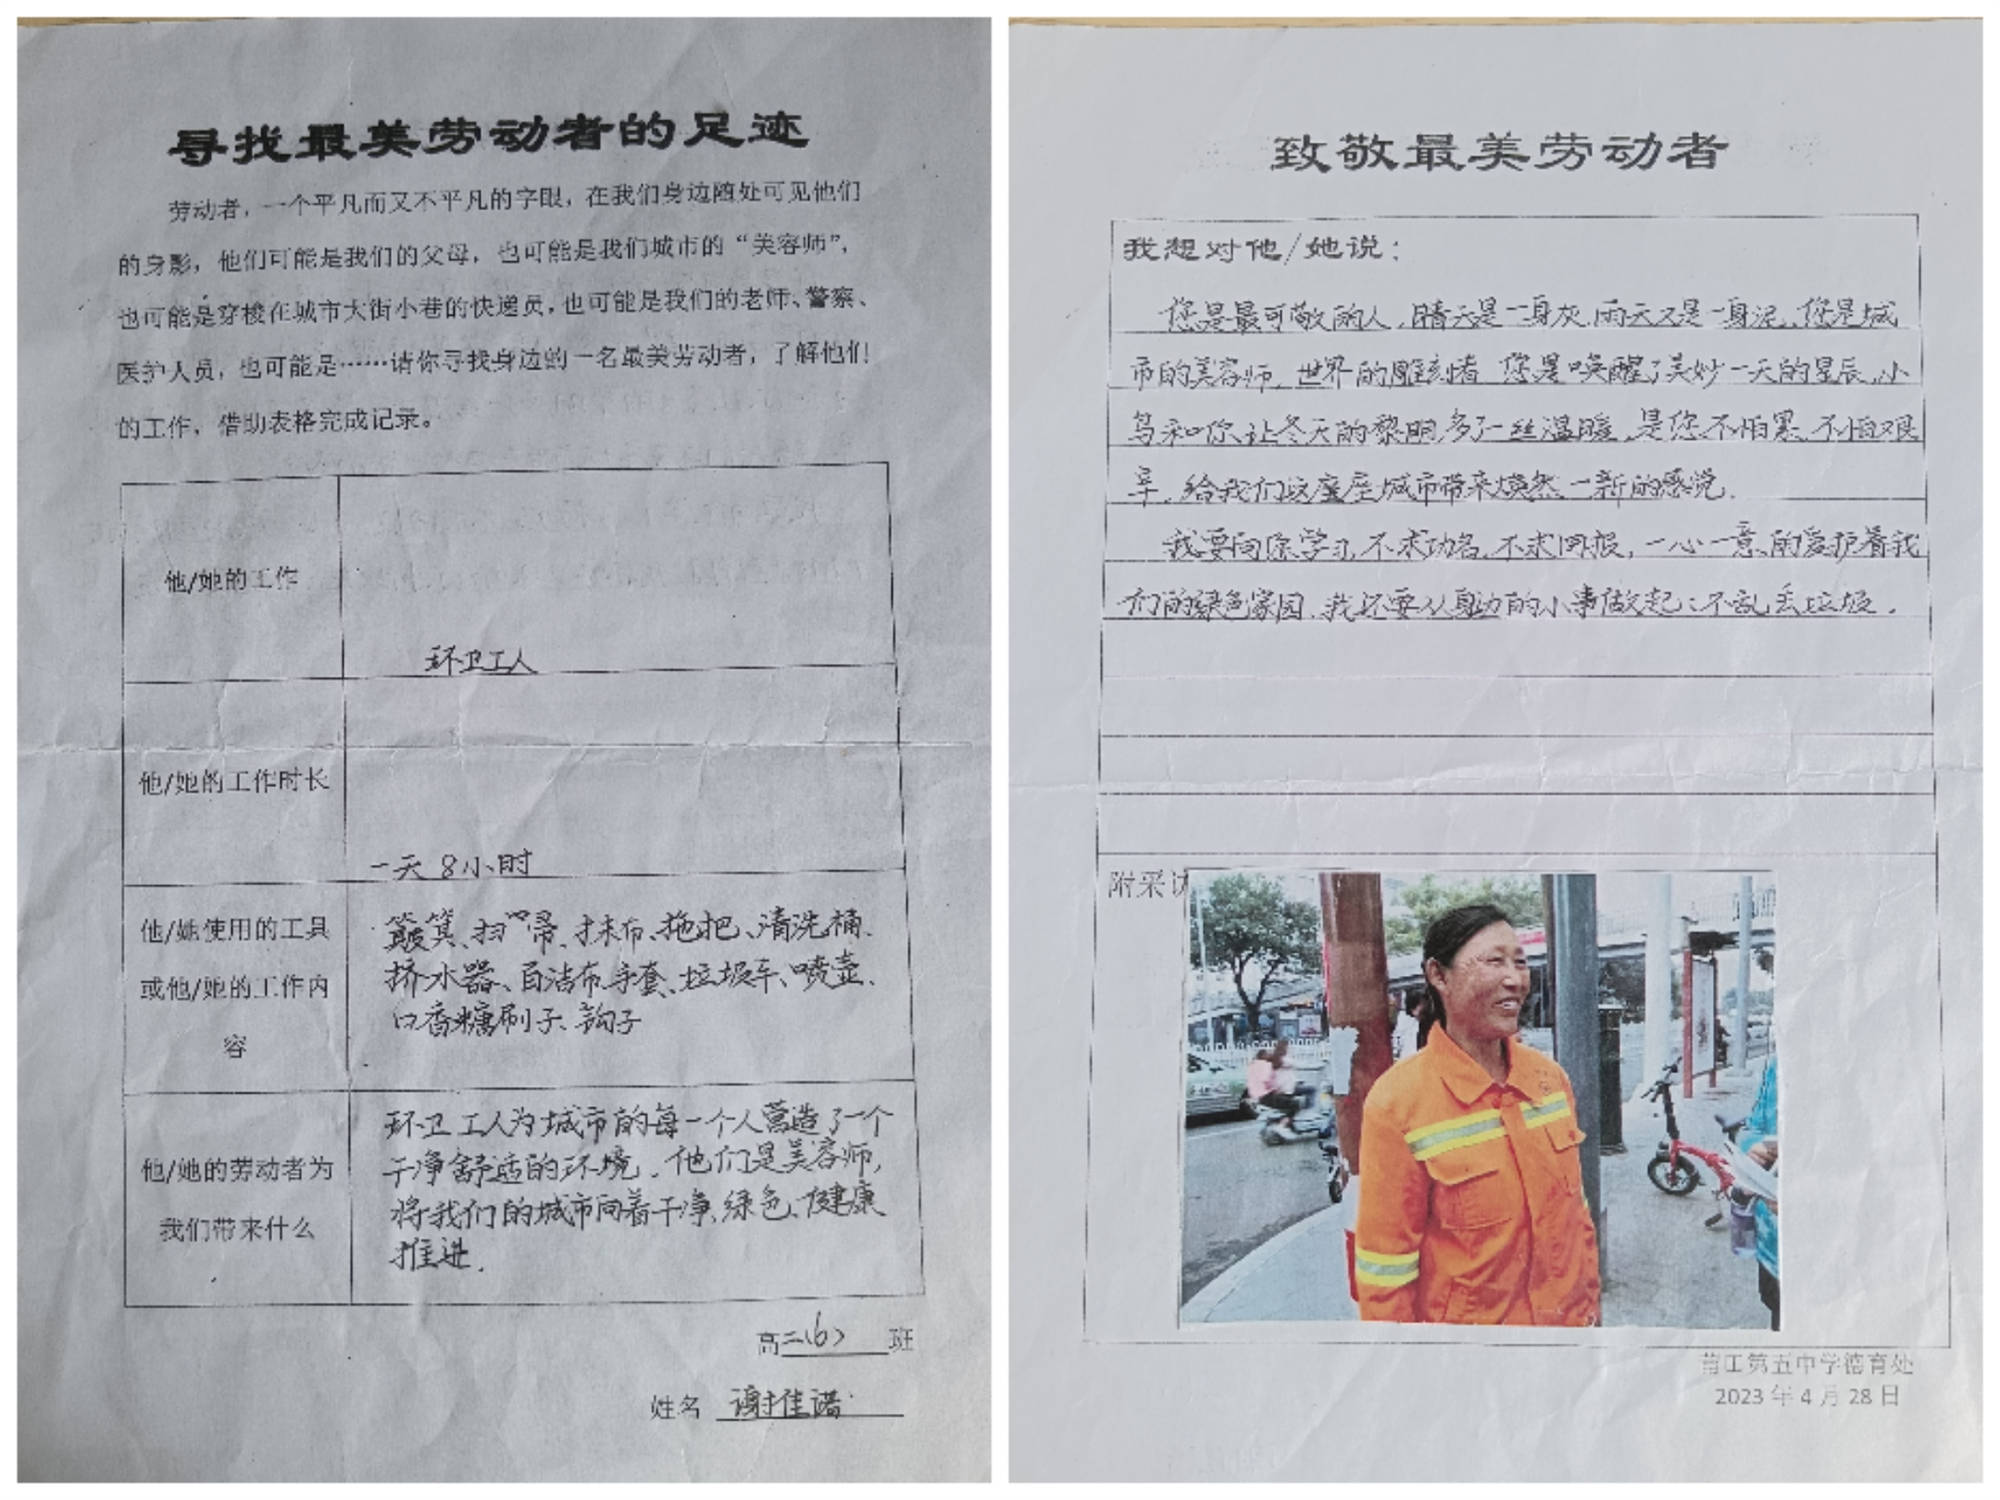 寻找最美劳动者的足迹
劳动者，一个平凡而又不平凡的字眼，在我们身边随处可见他们
的身影，他们可能是我们的父母，也可能是我们城市的“美容师”，
也可能是穿梭在城市大街小巷的快递员，也可能是我们的老师、警察、
医护人员，也可能是……请你寻找身边的一名最美劳动者，了解他们
的工作，借助表格完成记录。
他/她的工作
环卫工人
他/她的工作时长
一天8小时
他/她使用的工具
或他/她的工作内
容
簸箕、扫帚、抹布、拖把、清洗桶、
挤水器、百洁布、手套、垃圾车、喷壶、
口香糖刷子、钩子
他/她的劳动者为
我们带来什么
环卫工人为城市的每一个人营造了一个
干净舒适的环境，他们是美容师，
将我们的城市向着干净、绿色、健康
推进。
高二(6)班
姓名 谢佳诺
致敬最美劳动者
我想对他/她说：
您是最可敬的人，晴天是一身灰，雨天又是一身泥，您是城
市的美容师，世界的雕刻者，您是唤醒了美妙一天的星辰，小
草和你让冬天的黎明多了一丝温暖，是您不怕累、不怕艰
辛，给我们这座座城市带来焕然一新的感觉。
我要向您学习，不求功名，不求回报，一心一意的爱护着我
们的绿色家园，我还要从身边的小事做起：不乱丢垃圾。
附采访
第五中学德育处
2023 年 4 月 28 日